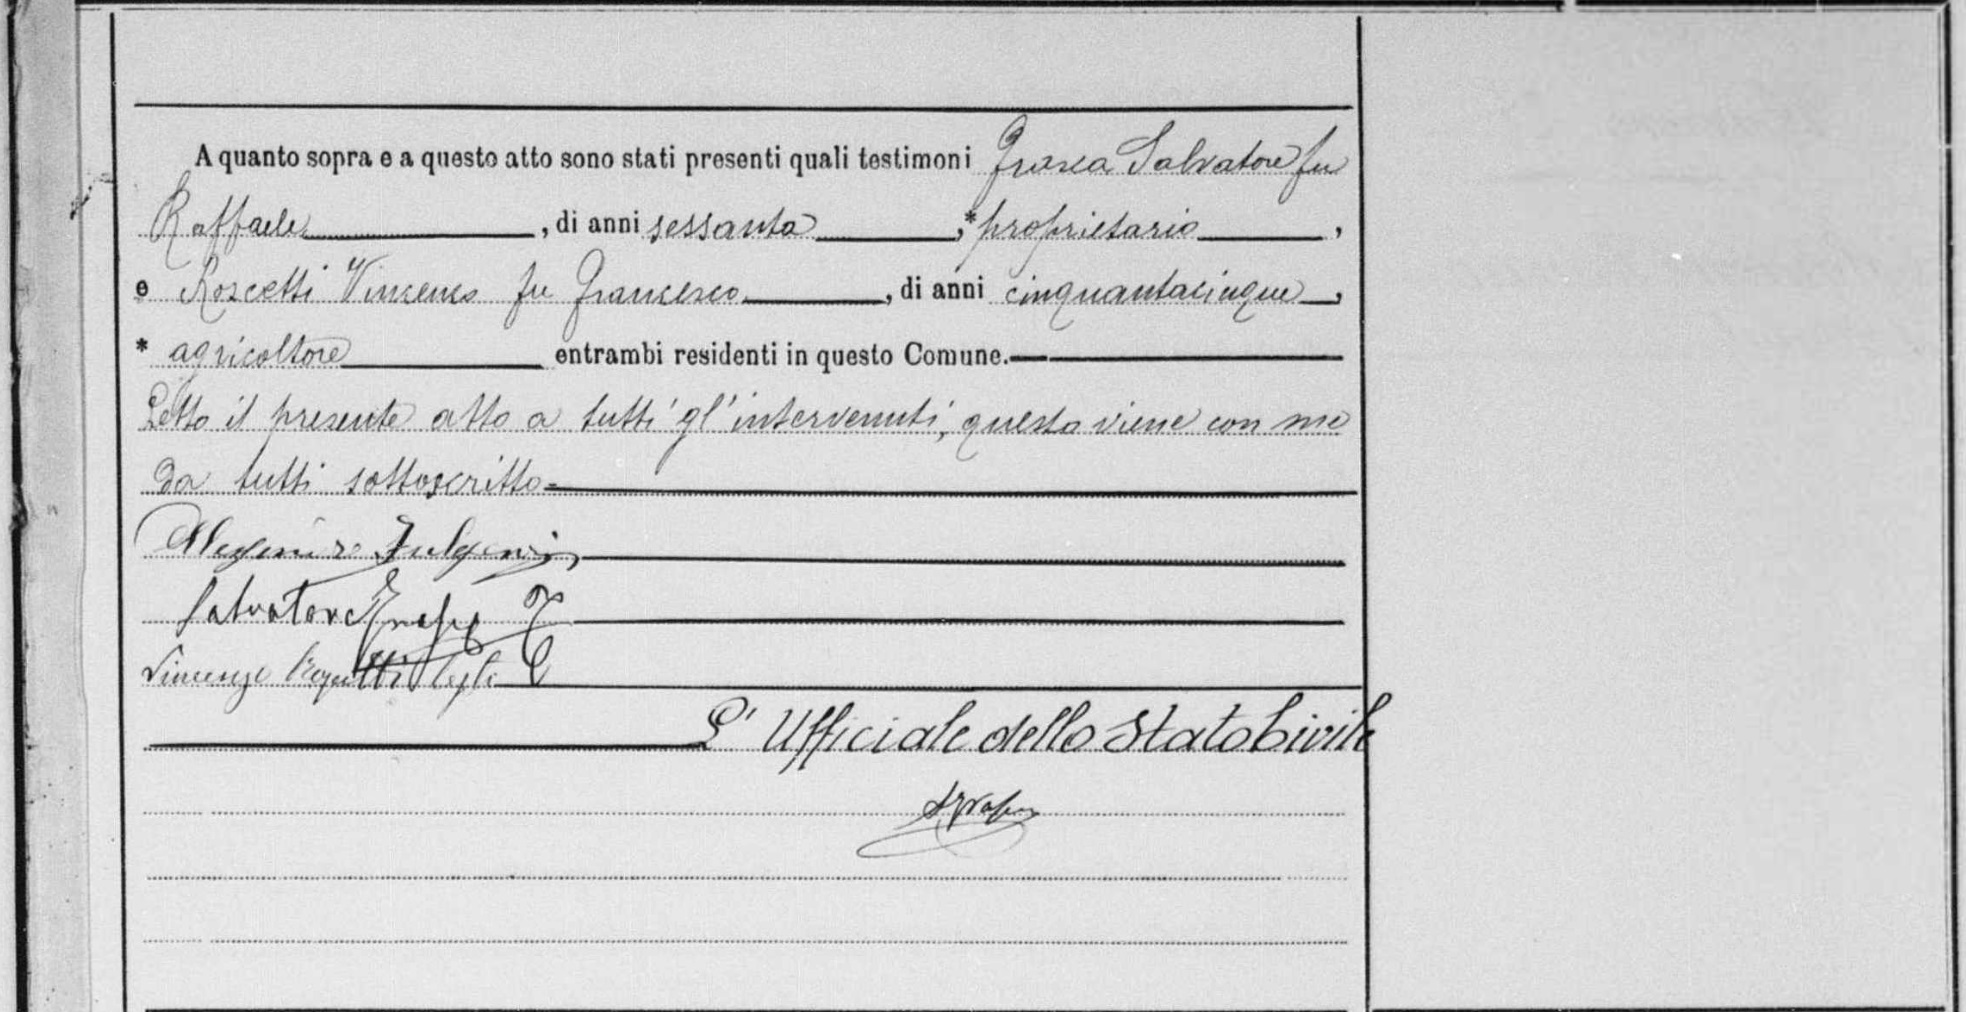 A quanto sopra e a questo atto sono stati presenti quali testimoni Salvatore fu
Raffaele, di anni sessanta, * proprietario,
e Roscetti Vincenzo fu Francesco, di anni cinquantacinque,
* agricoltore entrambi residenti in questo Comune.
Letto il presente atto a tutti gl'intervenuti, questo viene con me
da tutti sottoscritto=
Fulgenzi
Salvatore T
Vincenzo
L'Ufficiale dello Stato Civile